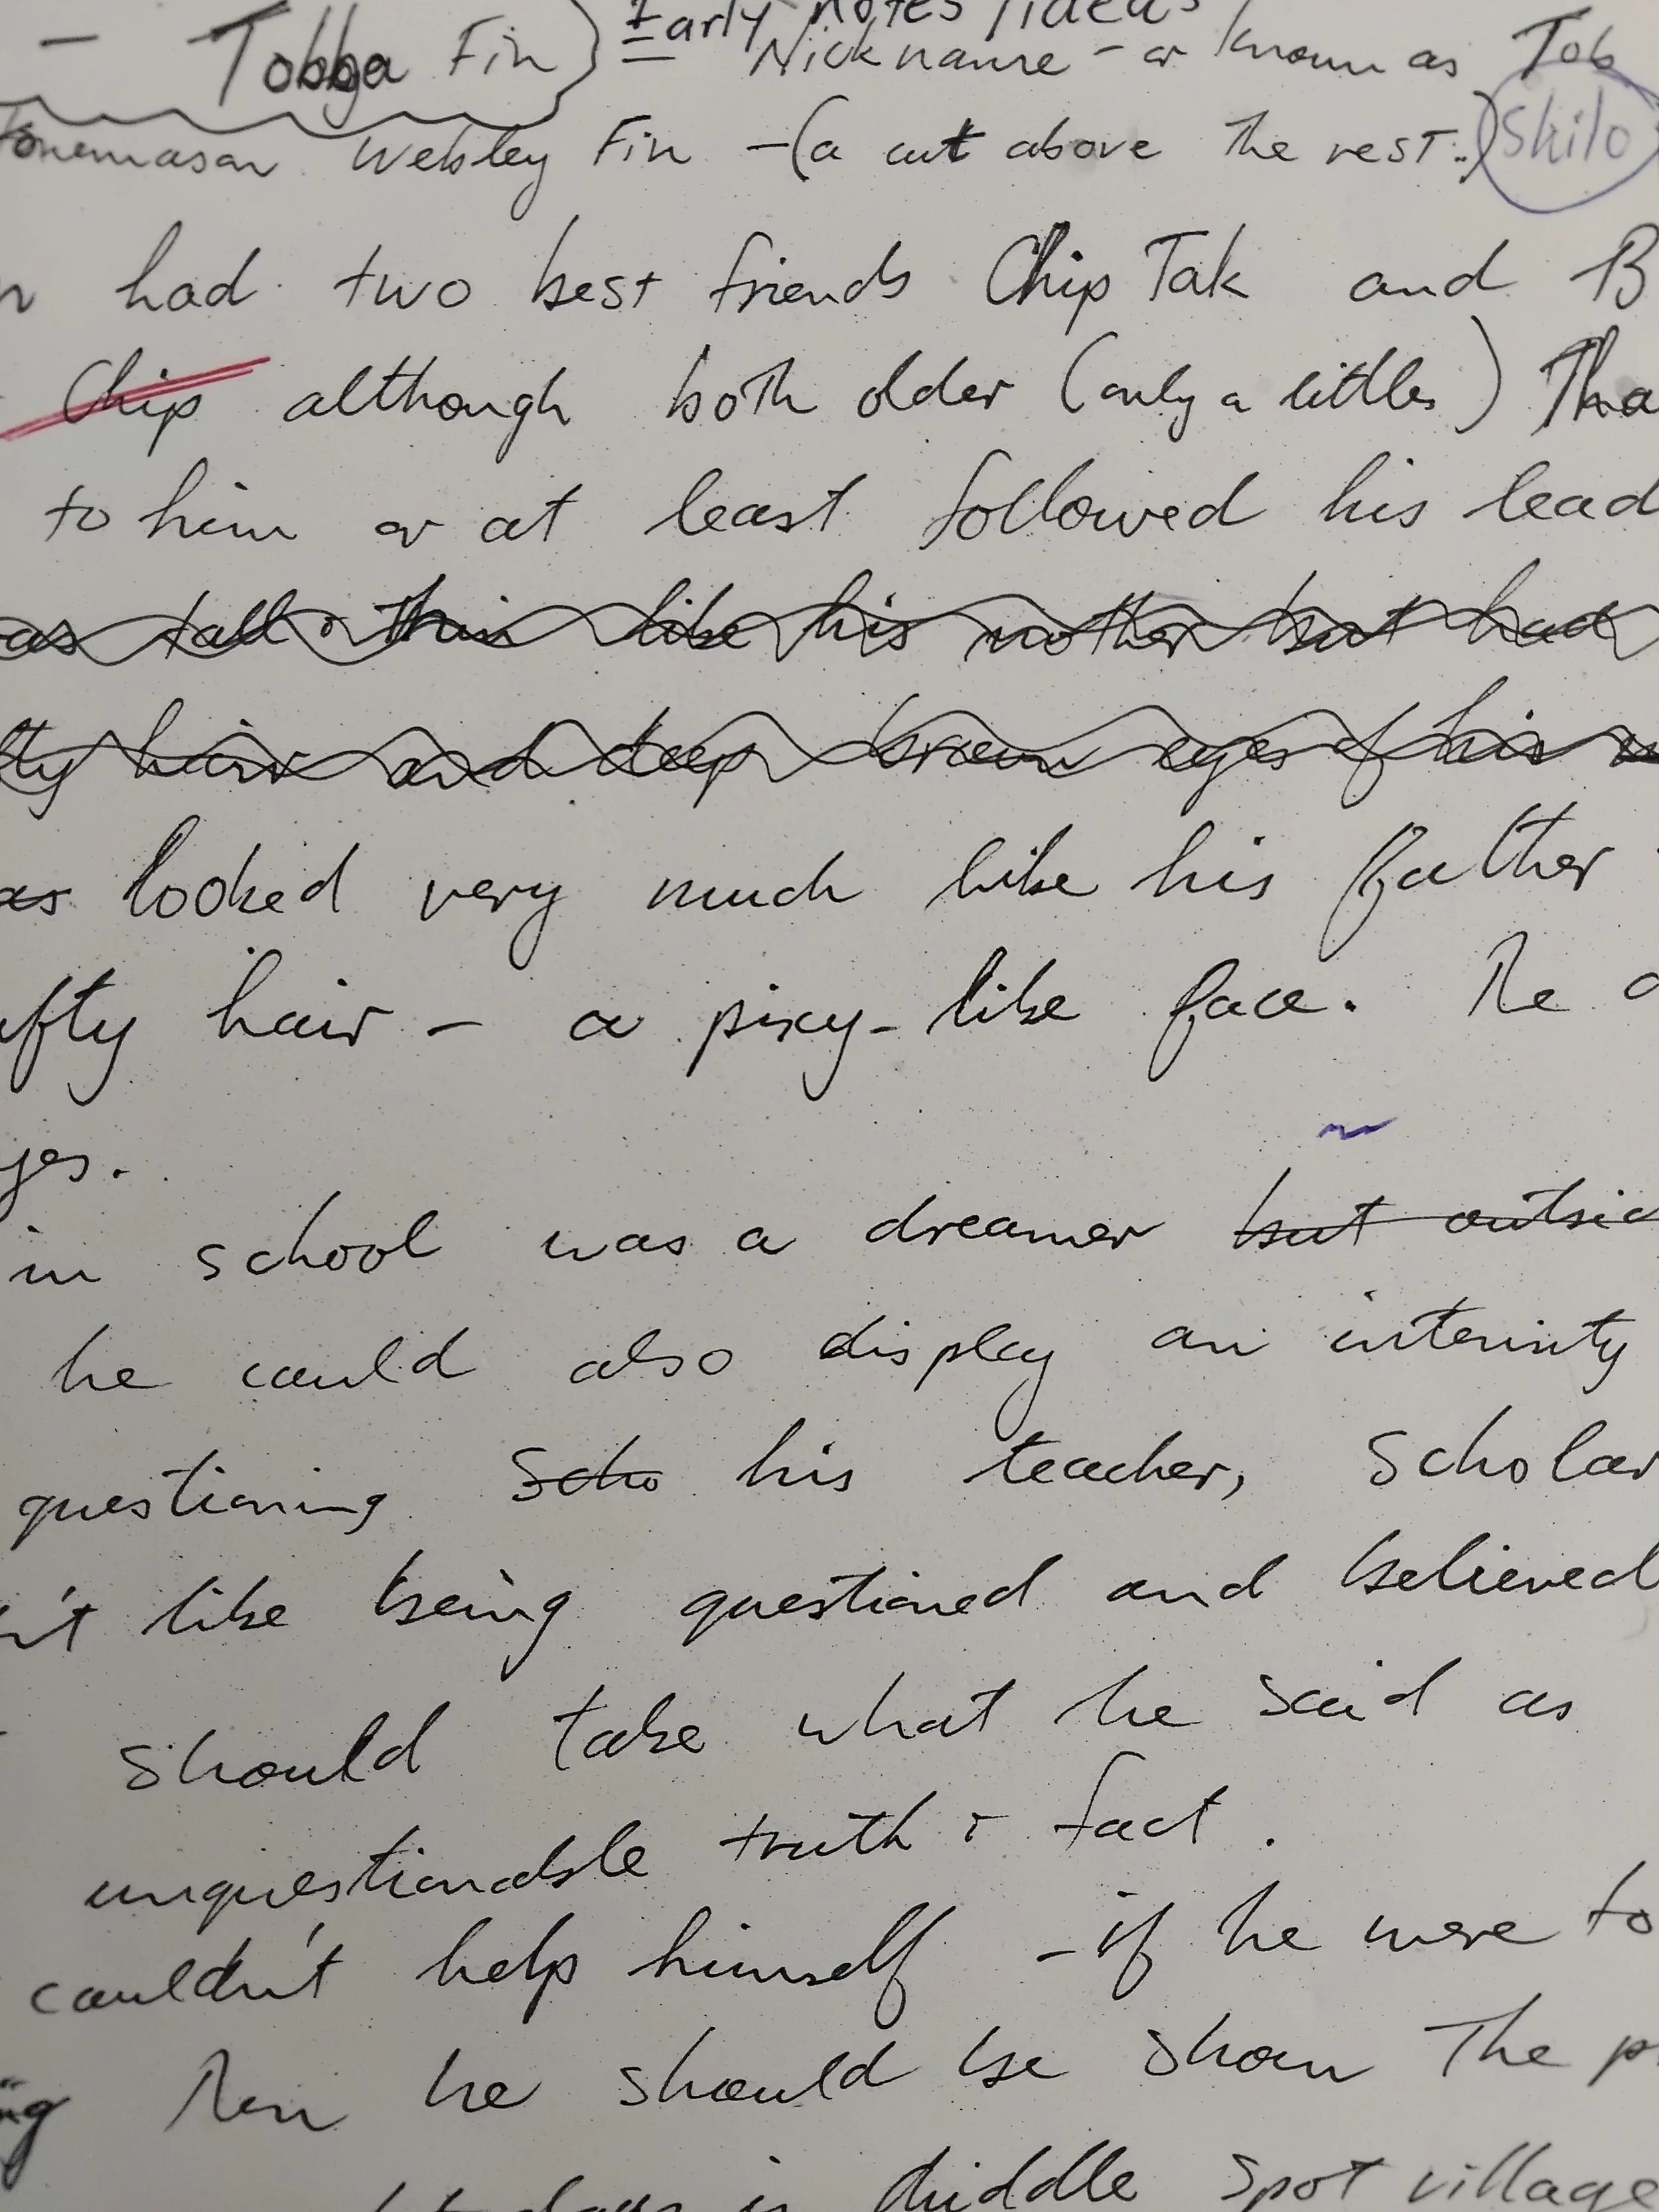 Early notes / ideas
- Tobba Fin
Nickname - or known as Tob
Webley Fin - (a cut above the rest..) Shilo
had two best friends Chip Tak and B
Chip although both older (only a little) Tha
to him or at least followed his lead
as tall & thin like his mother but had
ty hair and deep brown eyes of his
as looked very much like his father
fty hair - a pixy-like face. The
yes.
in school was a dreamer but outsid
he could also display an intensity
questioning Scho his teacher, Scholar
n't like being questioned and believed
should take what he said as
unquestionable truth & fact.
couldn't help himself - if he were to
ng then he should be shown the p
days in Middle Spot village